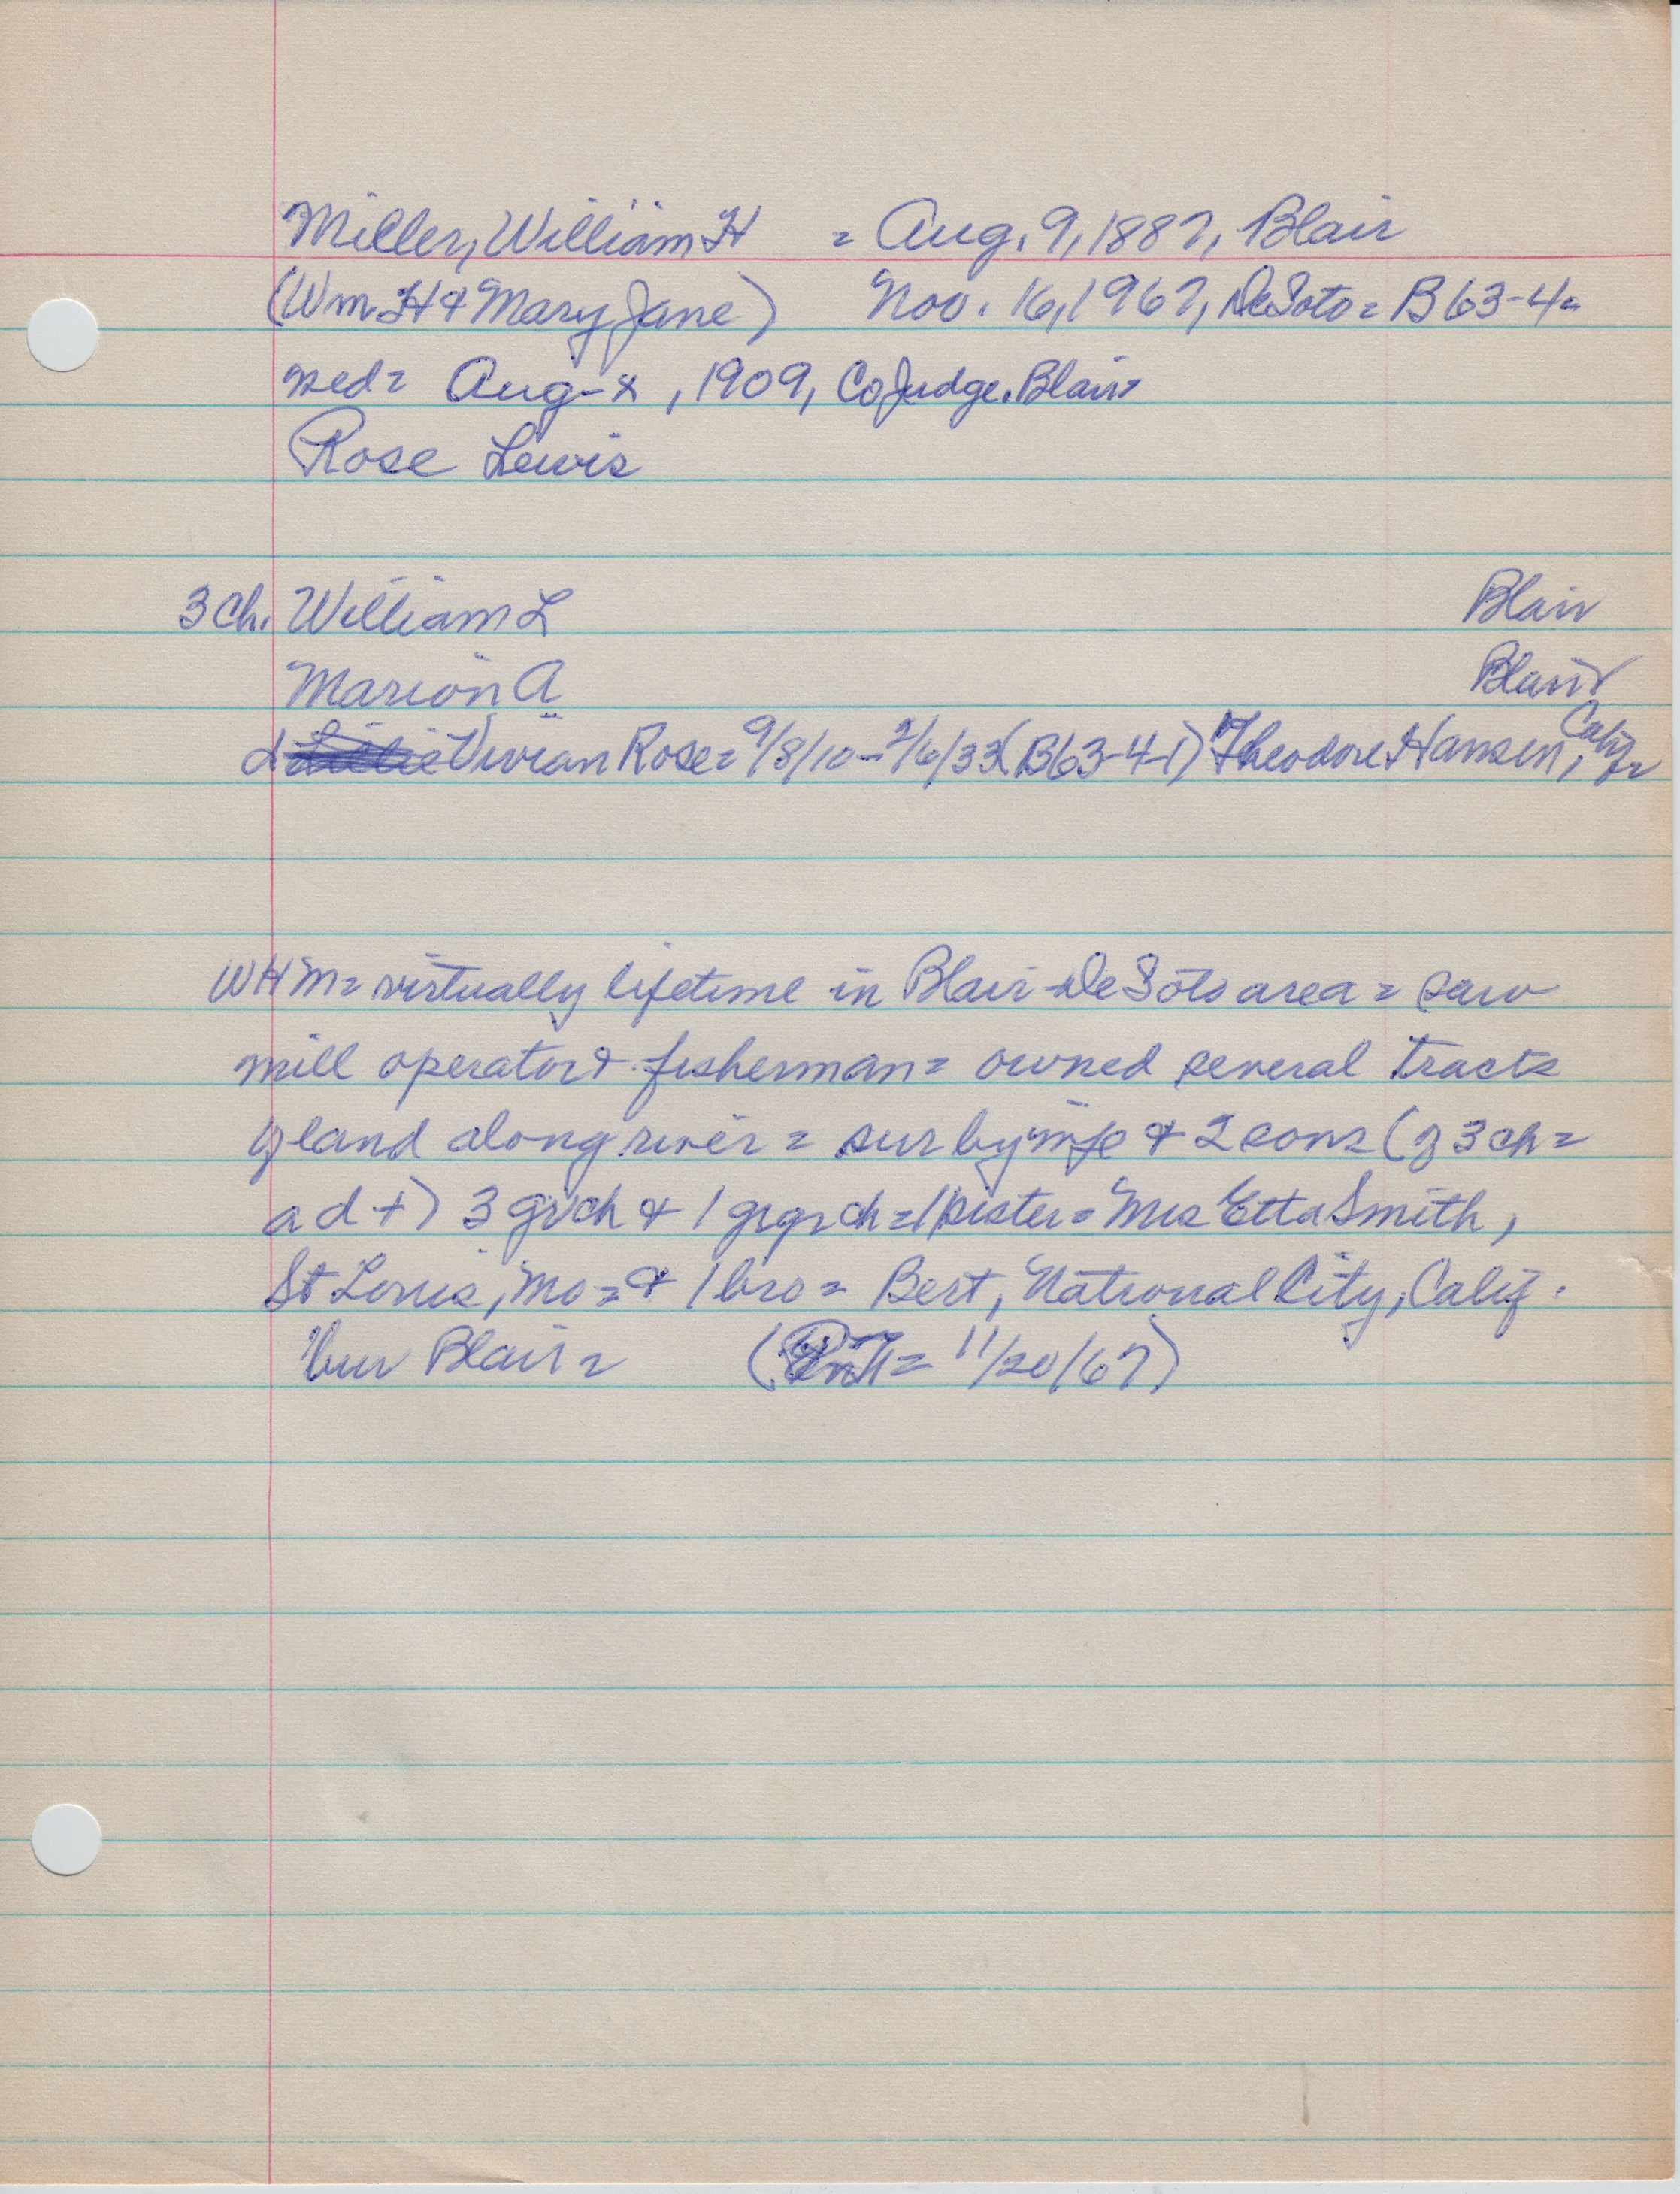 Miller, William H = Aug. 9, 1887, Blair
(Wm. H & Mary Jane) Nov. 16, 1967, DeSoto = B63-4=
med= Aug-x, 1909, Co Judge. Blair
Rose Lewis
3 ch. William L Blair
Marion A Blair
d Vivian Rose = 9/8/10-2/6/33 (B63-4-1) Theodore Hansen, Calif
WHM = virtually lifetime in Blair-DeSoto area = saw
mill operator & fisherman = owned several tracts
of land along river = sur by wife & 2 sons (of 3 ch =
a d+) 3 grch & 1 grgr ch = 1 sister = Mrs Etta Smith,
St Louis, Mo = & 1 bro = Bert, National City, Calif.
bur Blair = ( = 11/20/67)